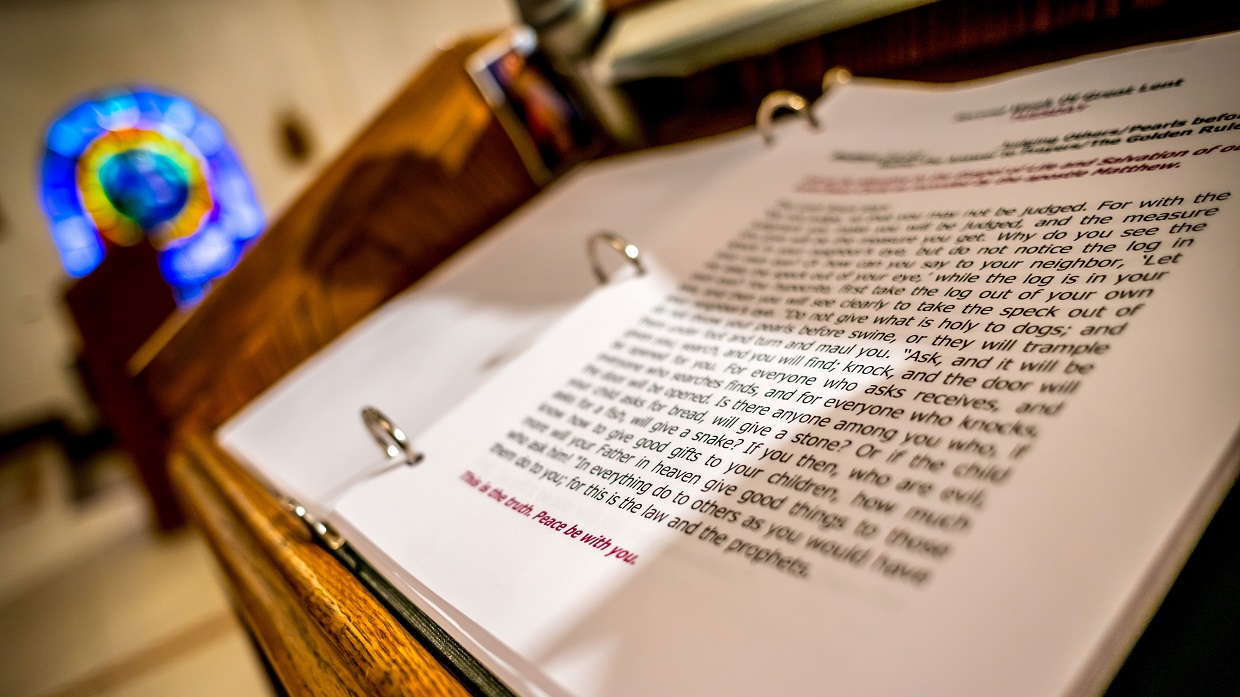 Week Of Great Lent
Judging Others/Pearls befor
Answer to Prayers/The Golden Rule
of Life and Salvation of ou
by the apostle Matthew.
you may not be judged. For with the
you will be judged, and the measure
the measure you get. Why do you see the
neighbor's eye, but do not notice the log in
how can you say to your neighbor, 'Let
the speck out of your eye,' while the log is in your
hypocrite, first take the log out of your own
then you will see clearly to take the speck out of
neighbor's eye. "Do not give what is holy to dogs; and
your pearls before swine, or they will trample
them under foot and turn and maul you. "Ask, and it will be
given you; search, and you will find; knock, and the door will
be opened for you. For everyone who asks receives, and
everyone who searches finds, and for everyone who knocks,
the door will be opened. Is there anyone among you who, if
your child asks for bread, will give a stone? Or if the child
asks for a fish, will give a snake? If you then, who are evil,
know how to give good gifts to your children, how much
more will your Father in heaven give good things to those
who ask him! "In everything do to others as you would have
them do to you; for this is the law and the prophets.
This is the truth. Peace be with you.